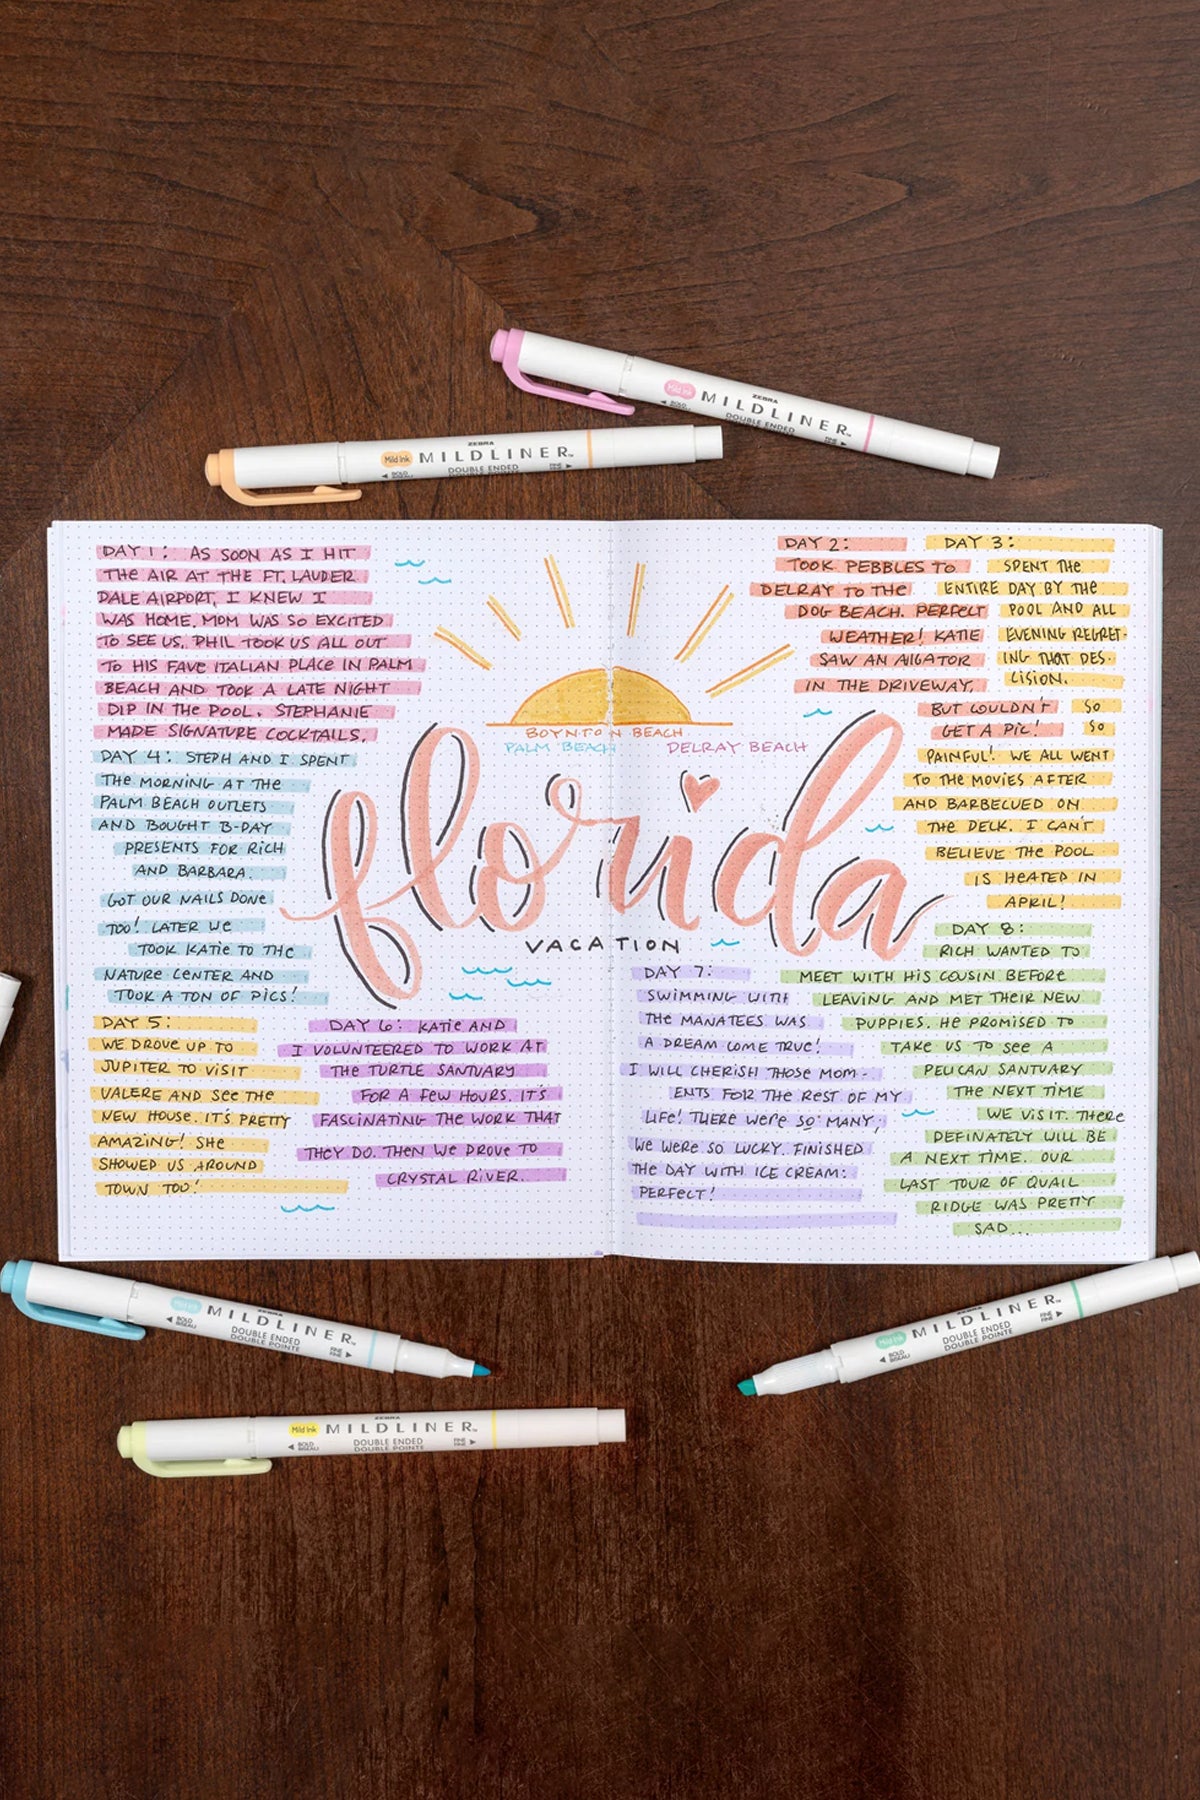 ZEBRA
Mild Ink MILDLINER™
BOLD DOUBLE ENDED FINE
ZEBRA
Mild Ink MILDLINER™
BOLD DOUBLE ENDED FINE
BISEAU
DAY 1: AS SOON AS I HIT
THE AIR AT THE FT. LAUDER
DALE AIRPORT, I KNEW I
WAS HOME. MOM WAS SO EXCITED
TO SEE US. PHIL TOOK US ALL OUT
TO HIS FAVE ITALIAN PLACE IN PALM
BEACH AND TOOK A LATE NIGHT
DIP IN THE POOL. STEPHANIE
MADE SIGNATURE COCKTAILS.
DAY 2:
TOOK PEBBLES TO
DELRAY TO THE
DOG BEACH. PERFECT
WEATHER! KATIE
SAW AN AIGATOR
IN THE DRIVEWAY,
BUT COULDN'T
GET A PIC!
DAY 3:
SPENT THE
ENTIRE DAY BY THE
POOL AND ALL
EVENING REGRET-
ING THAT DES-
CISION.
SO
SO
PAINFUL! WE ALL WENT
TO THE MOVIES AFTER
AND BARBECUED ON
THE DECK. I CAN'T
BELIEVE THE POOL
IS HEATED IN
APRIL!
BOYNTON BEACH
PALM BEACH DELRAY BEACH
florida
VACATION
DAY 4: STEPH AND I SPENT
THE MORNING AT THE
PALM BEACH OUTLETS
AND BOUGHT B-DAY
PRESENTS FOR RICH
AND BARBARA.
GOT OUR NAILS DONE
TOO! LATER WE
TOOK KATIE TO THE
NATURE CENTER AND
TOOK A TON OF PICS!
DAY 5:
WE DROVE UP TO
JUPITER TO VISIT
VALERE AND SEE THE
NEW HOUSE. IT'S PRETTY
AMAZING! SHE
SHOWED US AROUND
TOWN TOO!
DAY 6: KATIE AND
I VOLUNTEERED TO WORK AT
THE TURTLE SANTUARY
FOR A FEW HOURS. IT'S
FASCINATING THE WORK THAT
THEY DO. THEN WE DROVE TO
CRYSTAL RIVER.
DAY 7:
SWIMMING WITH
THE MANATEES WAS
A DREAM COME TRUE!
I WILL CHERISH THOSE MOM-
ENTS FOR THE REST OF MY
LIFE! THERE WERE SO MANY;
WE WERE SO LUCKY. FINISHED
THE DAY WITH ICE CREAM:
PERFECT!
DAY 8:
RICH WANTED TO
MEET WITH HIS COUSIN BEFORE
LEAVING AND MET THEIR NEW
PUPPIES. HE PROMISED TO
TAKE US TO SEE A
PELICAN SANTUARY
THE NEXT TIME
WE VISIT. THERE
DEFINATELY WILL BE
A NEXT TIME. OUR
LAST TOUR OF QUAIL
RIDGE WAS PRETTY
SAD...
ZEBRA
Mild Ink MILDLINER™
BOLD DOUBLE ENDED FINE
BISEAU DOUBLE POINTE FINE
ZEBRA
Mild Ink MILDLINER™
BOLD DOUBLE ENDED FINE
BISEAU DOUBLE POINTE FINE
ZEBRA
Mild Ink MILDLINER™
BOLD DOUBLE ENDED FINE
BISEAU DOUBLE POINTE FINE